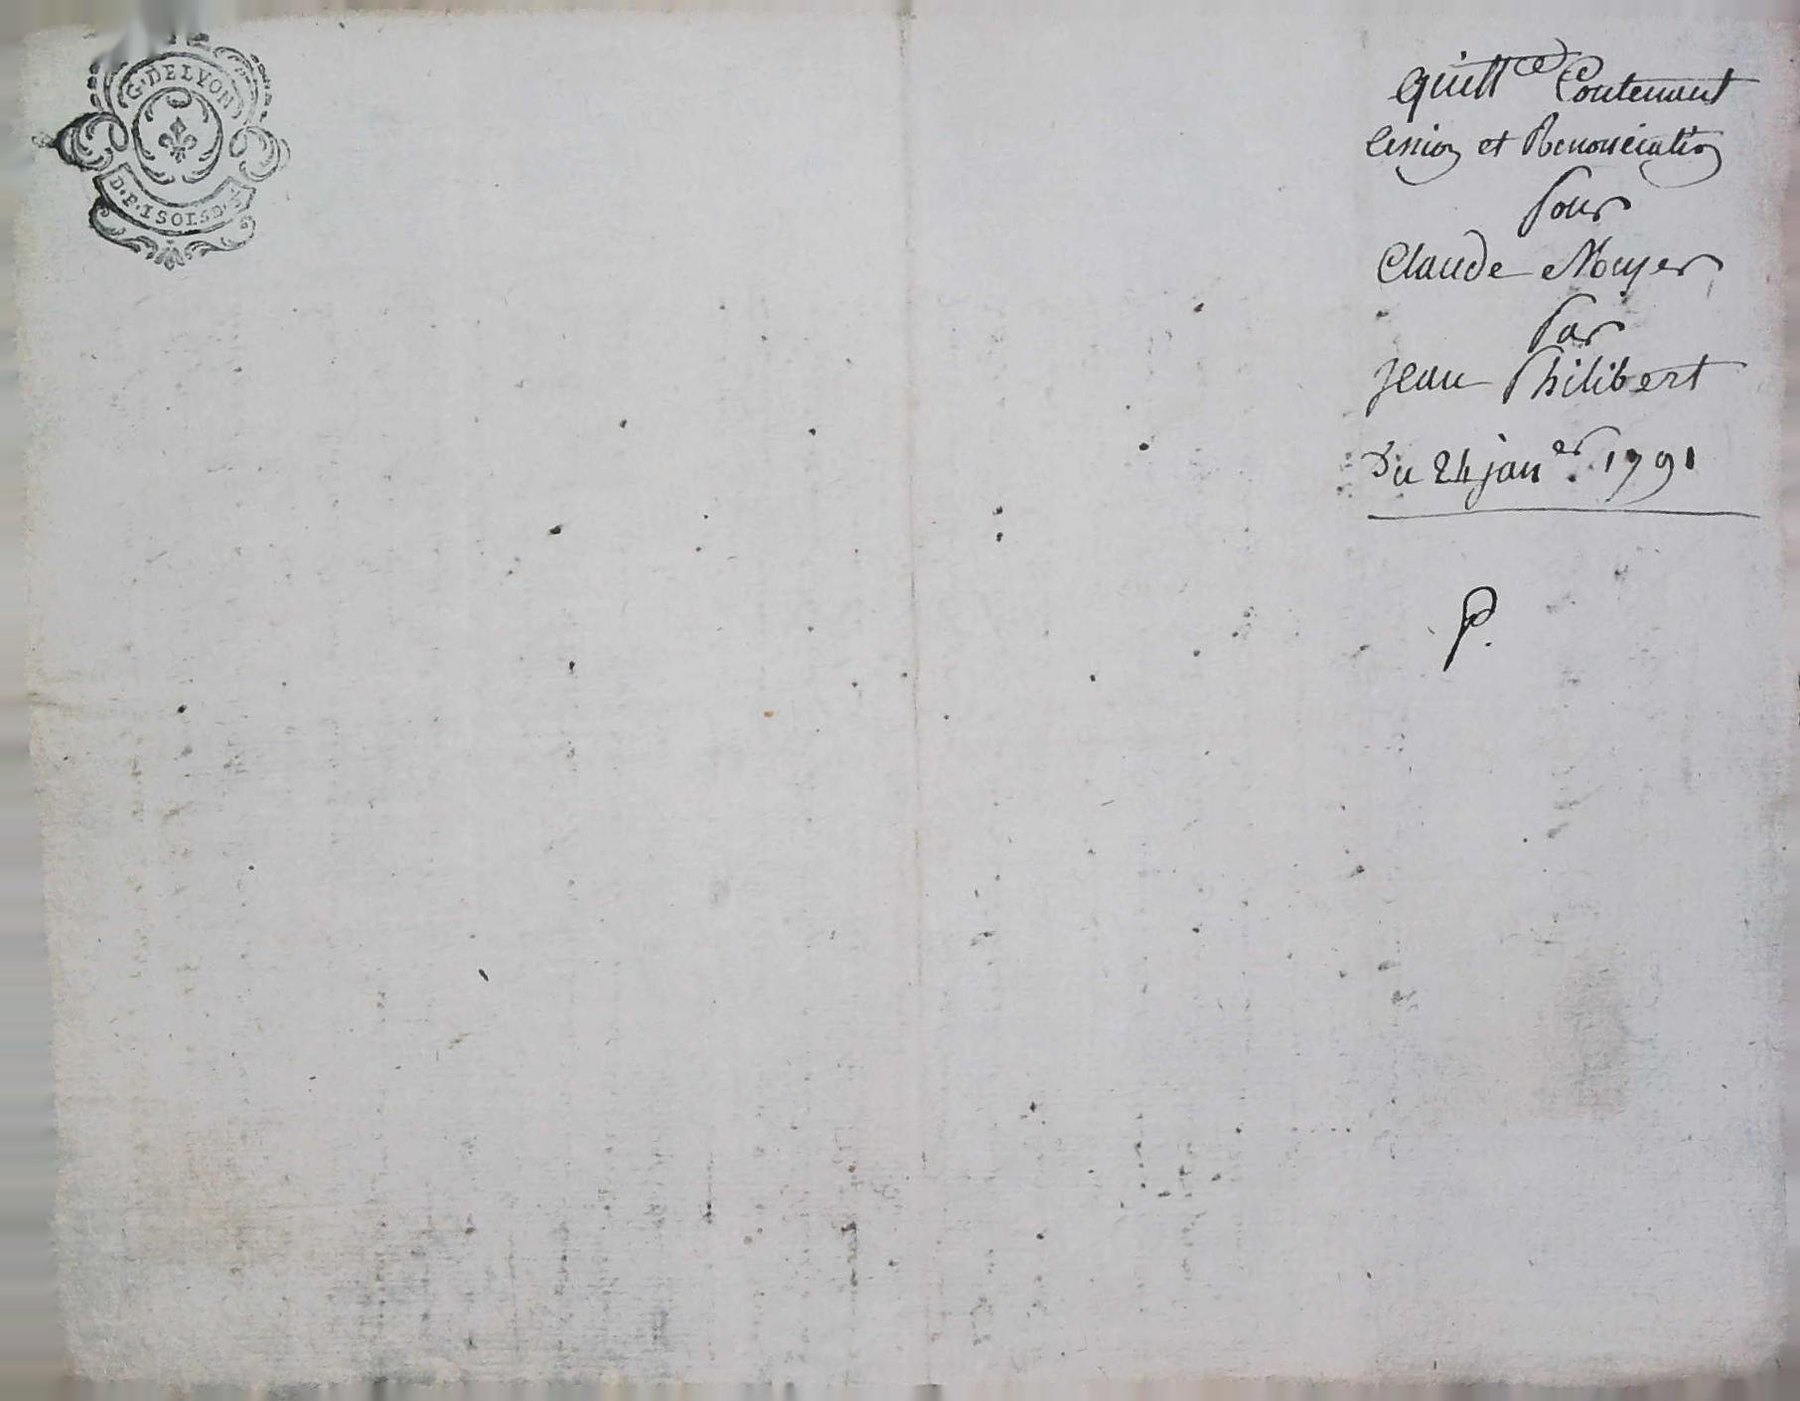 G·DE LYON
D.P. 1 SOL 8 D.
Quitt ce Contenant
Cession et Renonciation
pour
Claude Noyer
par
Jean Philibert
Du 24 jan er 1791
P.